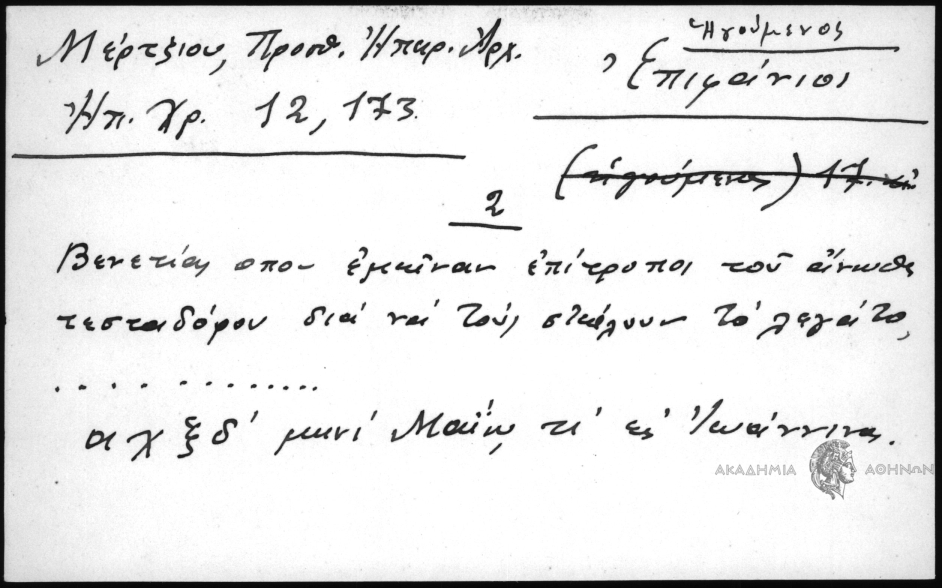 Μέρτζιου, Προσθ. Ἠπειρ. Ἀρχ.
Ἠπ. Χρ. 12, 173.
Ἡγούμενος
Ἐπιφάνιοι
(ἡγούμενος) 17.
2
Βενετίας οπου ἐμεῖναν ἐπίτροποι τοῦ ἄνωθε
τεσταδόρου διά νά τούς στείλουν τό λεγάτο,
. . . . . . . . . . . . .
αχξδ' μηνί Μαΐῳ, τί ες Ἰωάννινα.
ΑΚΑΔΗΜΙΑ ΑΘΗΝΩΝ